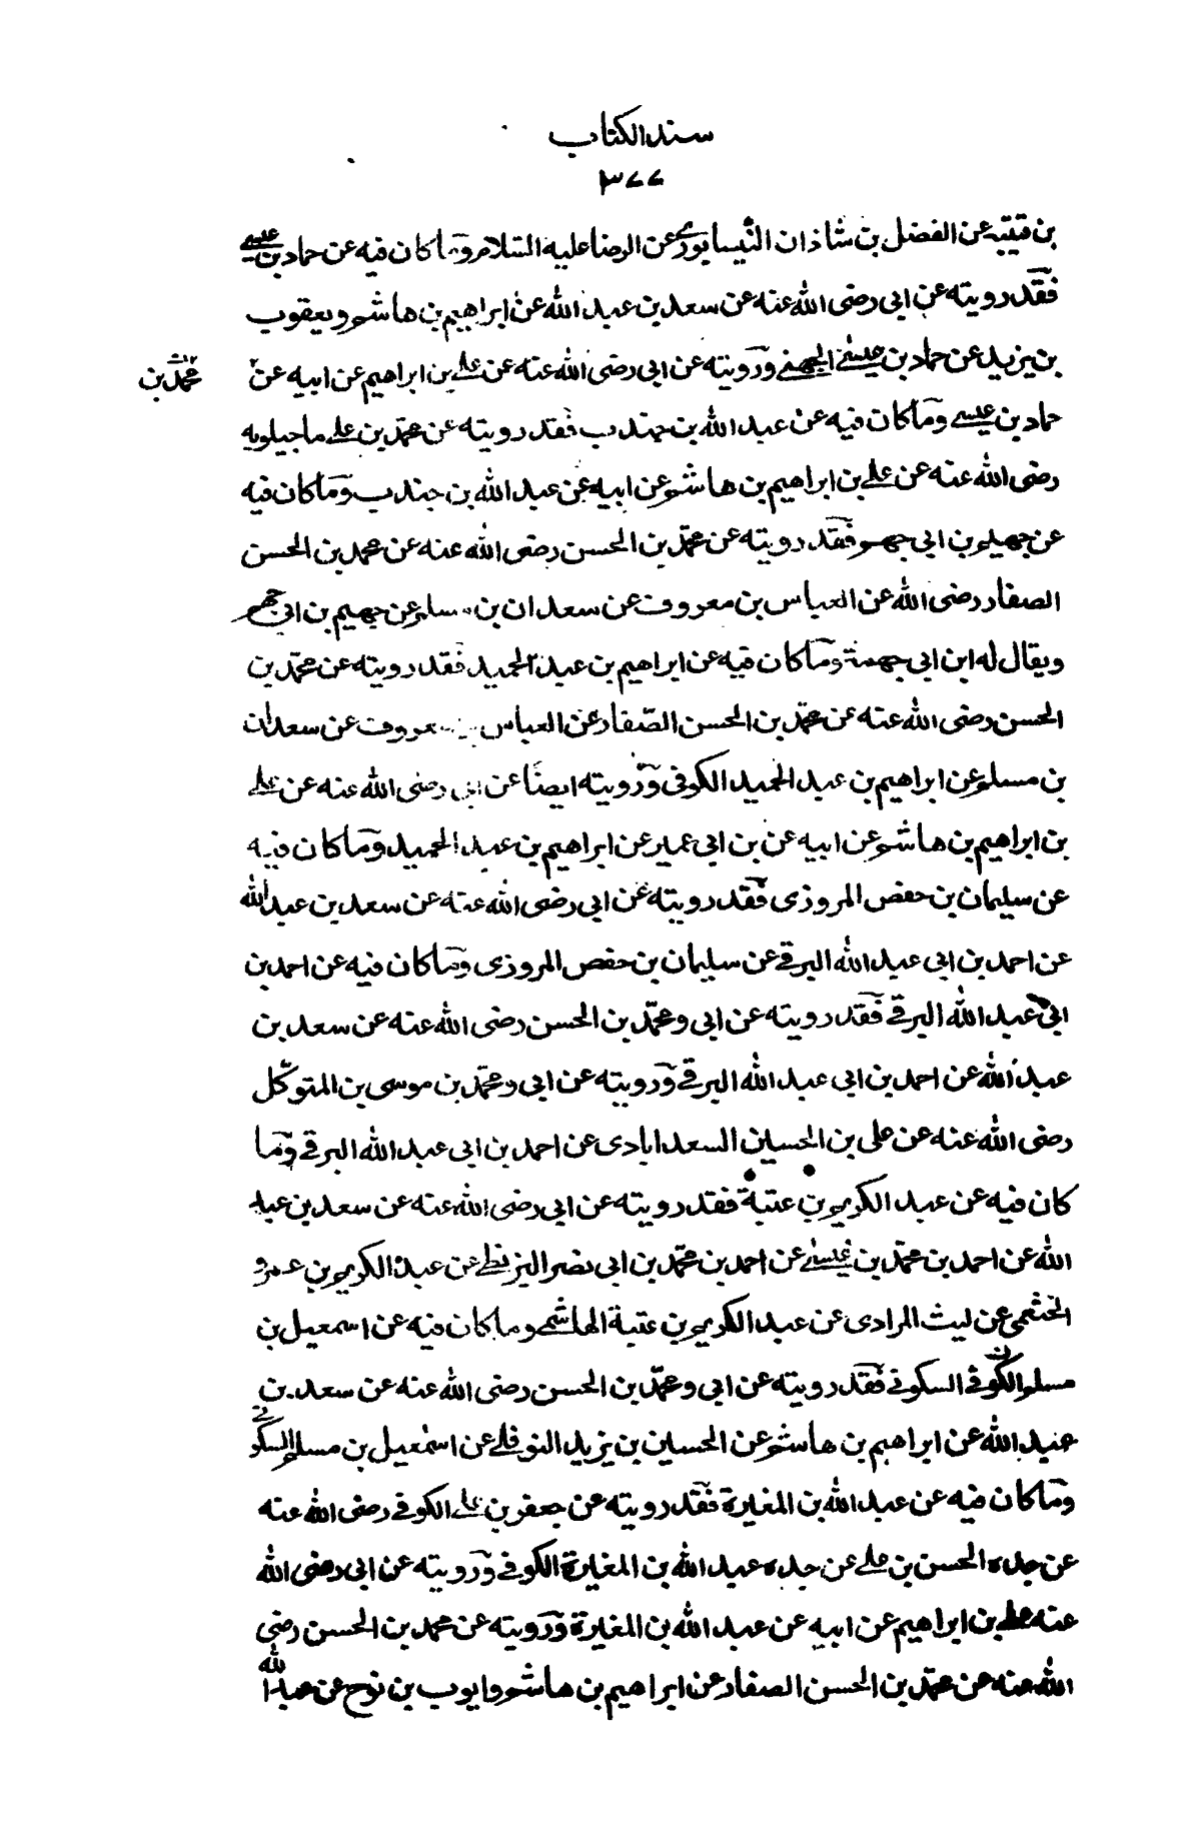 سند الكتاب
٣٧٧
بن قتيبة عن الفضل بن شاذان النيسابوري عن الرضا عليه السلام وما كان فيه عن حماد بن عيسى
فقد رويته عن ابى رضى الله عنه عن سعد بن عبد الله عن ابراهيم بن هاشم ويعقوب
بن يزيد عن حماد بن عيسى الجهني ورويته عن ابى رضى الله عنه عن على بن ابراهيم عن ابيه عن
محمد بن
حماد بن عيسى وما كان فيه عن عبد الله بن جندب فقد رويته عن محمد بن على ماجيلويه
رضى الله عنه عن على بن ابراهيم بن هاشم عن ابيه عن عبد الله بن جندب وما كان فيه
عن جهيم بن ابى جهم فقد رويته عن محمد بن الحسن رضى الله عنه عن محمد بن الحسن
الصفار رضى الله عن العباس بن معروف عن سعدان بن مسلم عن جهيم بن ابى جهم
ويقال له ابن ابى جهمة وما كان فيه عن ابراهيم بن عبد الحميد فقد رويته عن محمد بن
الحسن رضى الله عنه عن محمد بن الحسن الصفار عن العباس بن معروف عن سعدان
بن مسلم عن ابراهيم بن عبد الحميد الكوفى ورويته ايضا عن ابى رضى الله عنه عن على
بن ابراهيم بن هاشم عن ابيه عن بن ابى عمير عن ابراهيم بن عبد الحميد وما كان فيه
عن سليمان بن حفص المروزى فقد رويته عن ابى رضى الله عنه عن سعد بن عبد الله
عن احمد بن ابى عبد الله البرقى عن سليمان بن حفص المروزى وما كان فيه عن احمد بن
ابى عبد الله البرقى فقد رويته عن ابى ومحمد بن الحسن رضى الله عنه عن سعد بن
عبد الله عن احمد بن ابى عبد الله البرقى ورويته عن ابى ومحمد بن موسى بن المتوكل
رضى الله عنه عن على بن الحسين السعدابادى عن احمد بن ابى عبد الله البرقى وما
كان فيه عن عبد الكريم بن عتبة فقد رويته عن ابى رضى الله عنه عن سعد بن عبد
الله عن احمد بن محمد بن عيسى عن احمد بن محمد بن ابى نصر البزنطى عن عبد الكريم بن عمرو
الخثعمى عن ليث المرادى عن عبد الكريم بن عتبة الهاشمى وما كان فيه عن اسمعيل بن
مسلم الكوفى السكونى فقد رويته عن ابى ومحمد بن الحسن رضى الله عنه عن سعد بن
عبد الله عن ابراهيم بن هاشم عن الحسين بن يزيد النوفلى عن اسمعيل بن مسلم السكونى
وما كان فيه عن عبد الله بن المغيرة فقد رويته عن جعفر بن على الكوفى رضى الله عنه
عن جده الحسن بن على عن جده عبد الله بن المغيرة الكوفى ورويته عن ابى رضى الله
عنه على بن ابراهيم عن ابيه عن عبد الله بن المغيرة ورويته عن محمد بن الحسن رضى
الله عنه عن محمد بن الحسن الصفار عن ابراهيم بن هاشم وايوب بن نوح عن عبد الله